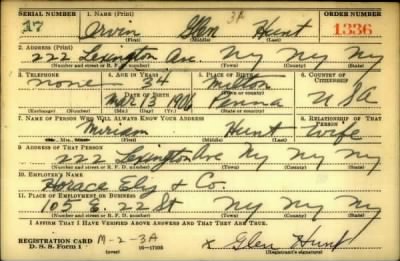 SERIAL NUMBER 1. NAME (Print) ORDER NUMBER
17 Orvin Glen Hunt 3A 1336
(First) (Middle) (Last)
2. ADDRESS (Print)
222 Lexington Ave. Ny Ny Ny
(Number and street or R. F. D. number) (Town) (County) (State)
3. TELEPHONE 4. AGE IN YEARS 5. PLACE OF BIRTH 6. COUNTRY OF CITIZENSHIP
none 34 Milton
DATE OF BIRTH
Mar 13 1906 Penna USA
(Exchange) (Number) (Mo.) (Day) (Yr.) (State or country)
7. NAME OF PERSON WHO WILL ALWAYS KNOW YOUR ADDRESS 8. RELATIONSHIP OF THAT PERSON
Miriam Hunt Wife
(Mr., Mrs., Miss) (First) (Middle) (Last)
9. ADDRESS OF THAT PERSON
222 Lexington Ave Ny Ny Ny
(Number and street or R. F. D. number) (Town) (County) (State)
10. EMPLOYER'S NAME
Horace Ely & Co.
11. PLACE OF EMPLOYMENT OR BUSINESS
105 E. 22 St Ny Ny Ny
(Number and street or R. F. D. number) (Town) (County) (State)
I AFFIRM THAT I HAVE VERIFIED ABOVE ANSWERS AND THAT THEY ARE TRUE.
REGISTRATION CARD M-2-3A x Glen Hunt
D. S. S. Form 1 (over) 16-17105 (Registrant's signature)